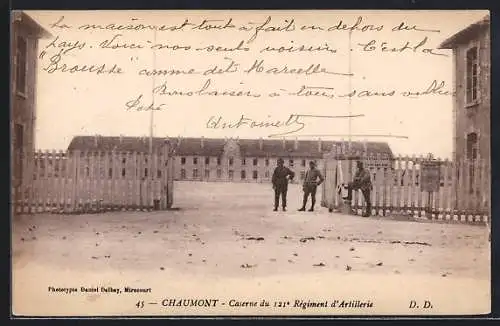 La maison est tout à fait en dehors du
pays. Voici nos seuls voisins. C'est la
"Brousse" comme dit Marcelle
Bons baisers à tous, sans oublier
Antoinette
Phototypie Daniel Delbay, Mirecourt
45 - CHAUMONT - Caserne du 121e Régiment d'Artillerie D. D.